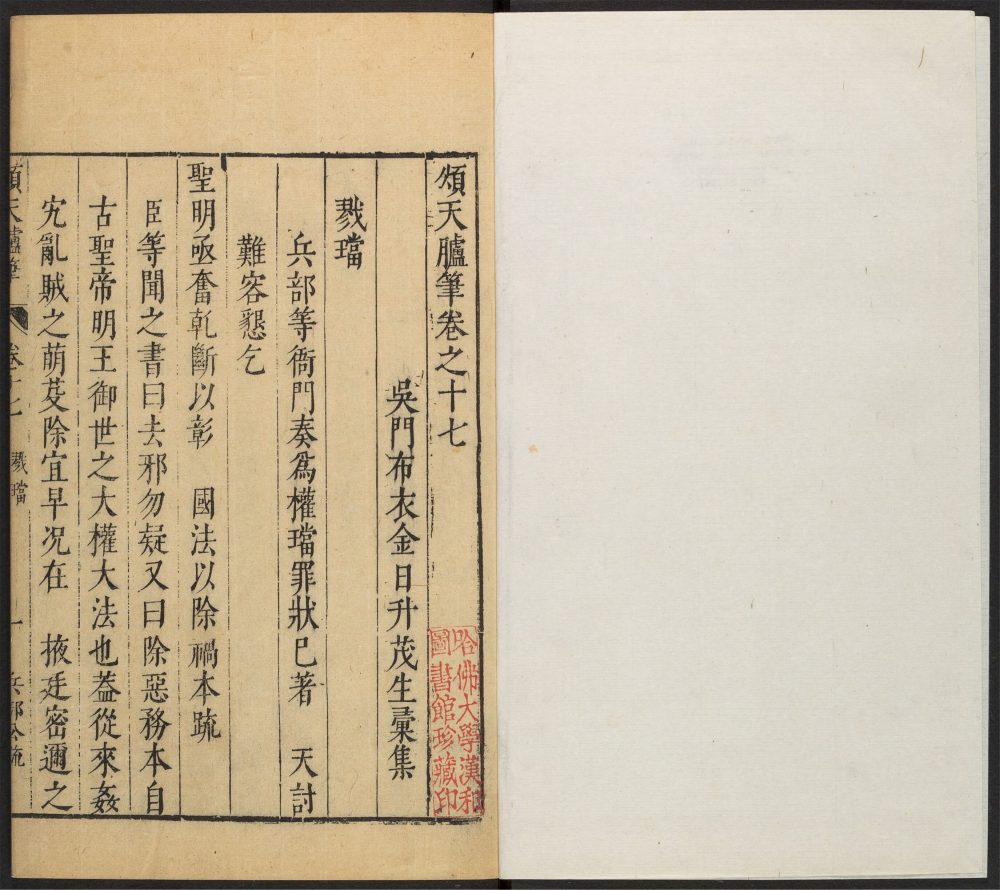 頌天臚筆卷之十七
吳門布衣金日升茂生彙集
戮璫
兵部等衙門奏爲權璫罪狀已著　天討
難容懇乞
聖明亟奮乾斷以彰　國法以除禍本疏
臣等聞之書曰去邪勿疑又曰除惡務本自
古聖帝明王御世之大權大法也蓋從來姦
宄亂賊之萌芟除宜早況在　掖廷密邇之
頌天臚筆　卷十七　戮璫　一　兵部公疏
哈佛大學漢和
圖書館珍藏印